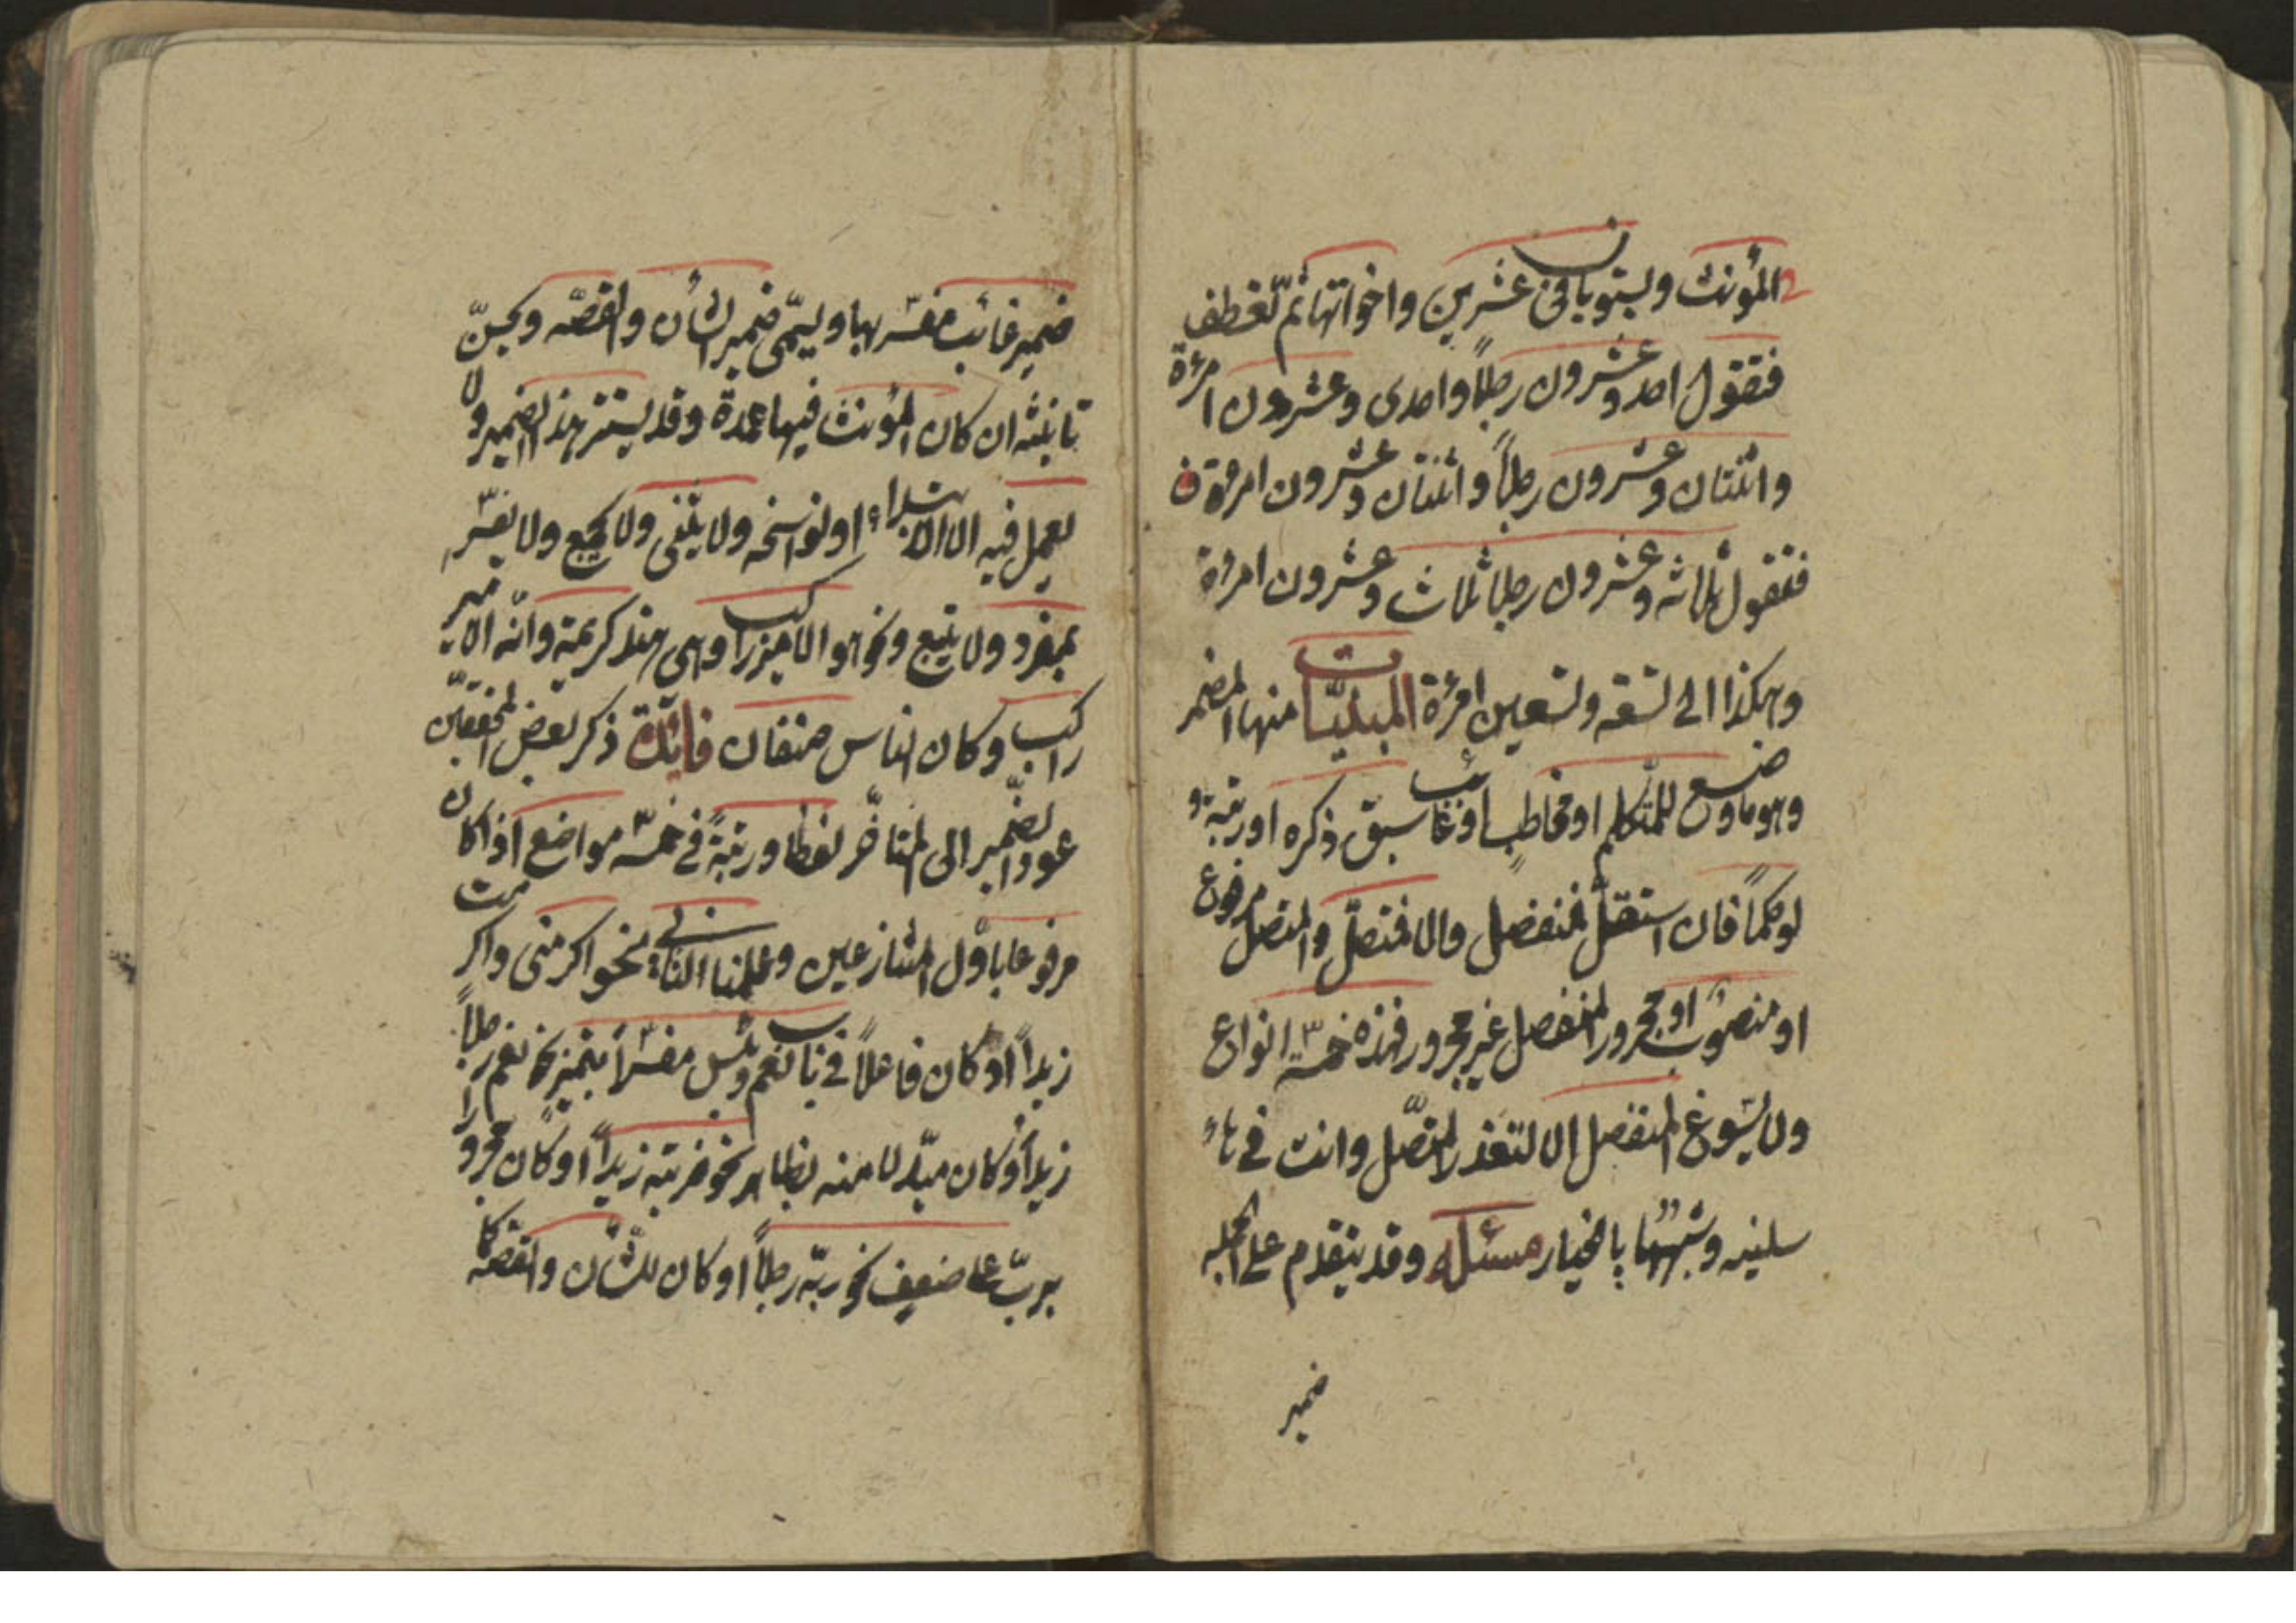 المؤنث ويستويان في عشرين واخواتها ثم تعطف
فتقول احد وعشرون رجلاً واحدى وعشرون امرئة
واثنتان وعشرون رجلاً واثنتان وعشرون امرئة ف
فتقول ثلاثه وعشرون رجلا ثلاث وعشرون امرئة
وهكذا الى تسعه وتسعين امرئة المبنيّات منها المضمر
وهو ما وضع للمتكلم او مخاطب او غائب سبق ذكره او رتبة و
لو حكماً فان استقلّ فمنفصل والا فمتصل والمتصل مرفوع
او منصوب او مجرور المنفصل غير مجرور فهذه خمسة انواع
ولا يسوغ المنفصل الا لتعذر المتصل وانت في هاء
سلنيه وشبهها بالخيار مسئله وقد يتقدم على الجمله
ضمير
ضمير غائب مفسّر بها ويسمّى ضمير الشأن والقصّه ويحسن
تانيثه ان كان المؤنث فيها عمدة وقد يستتر هذا الضمير ولا
يعمل فيه الا الابتداء او نواسخه ولا يثنى ولا يجمع ولا يفسّر
بمفرد ولا يتبع ونحو هو الامير راكب وهى هند كريمة وانّه الامير
راكب وكان الناس صنفان فائدة ذكر بعض المحققين
عود الضمير الى المتاخّر لفظا ورتبةً في خمسة مواضع اذا كان
مرفوعا باوّل المتنازعين وعلمنا الثاني نحو اكرمنى واكرمت
زيداً او كان فاعلاً في باب نعم وبئس مفسّراً بتميز نحو نعم رجلاً
زيداً او كان مبدلا منه لظاهر نحو ضربته زيداً او كان مجرورا
بربّ على ضعيف نحو ربّه رجلاً او كان للشّأن والقصّه كا